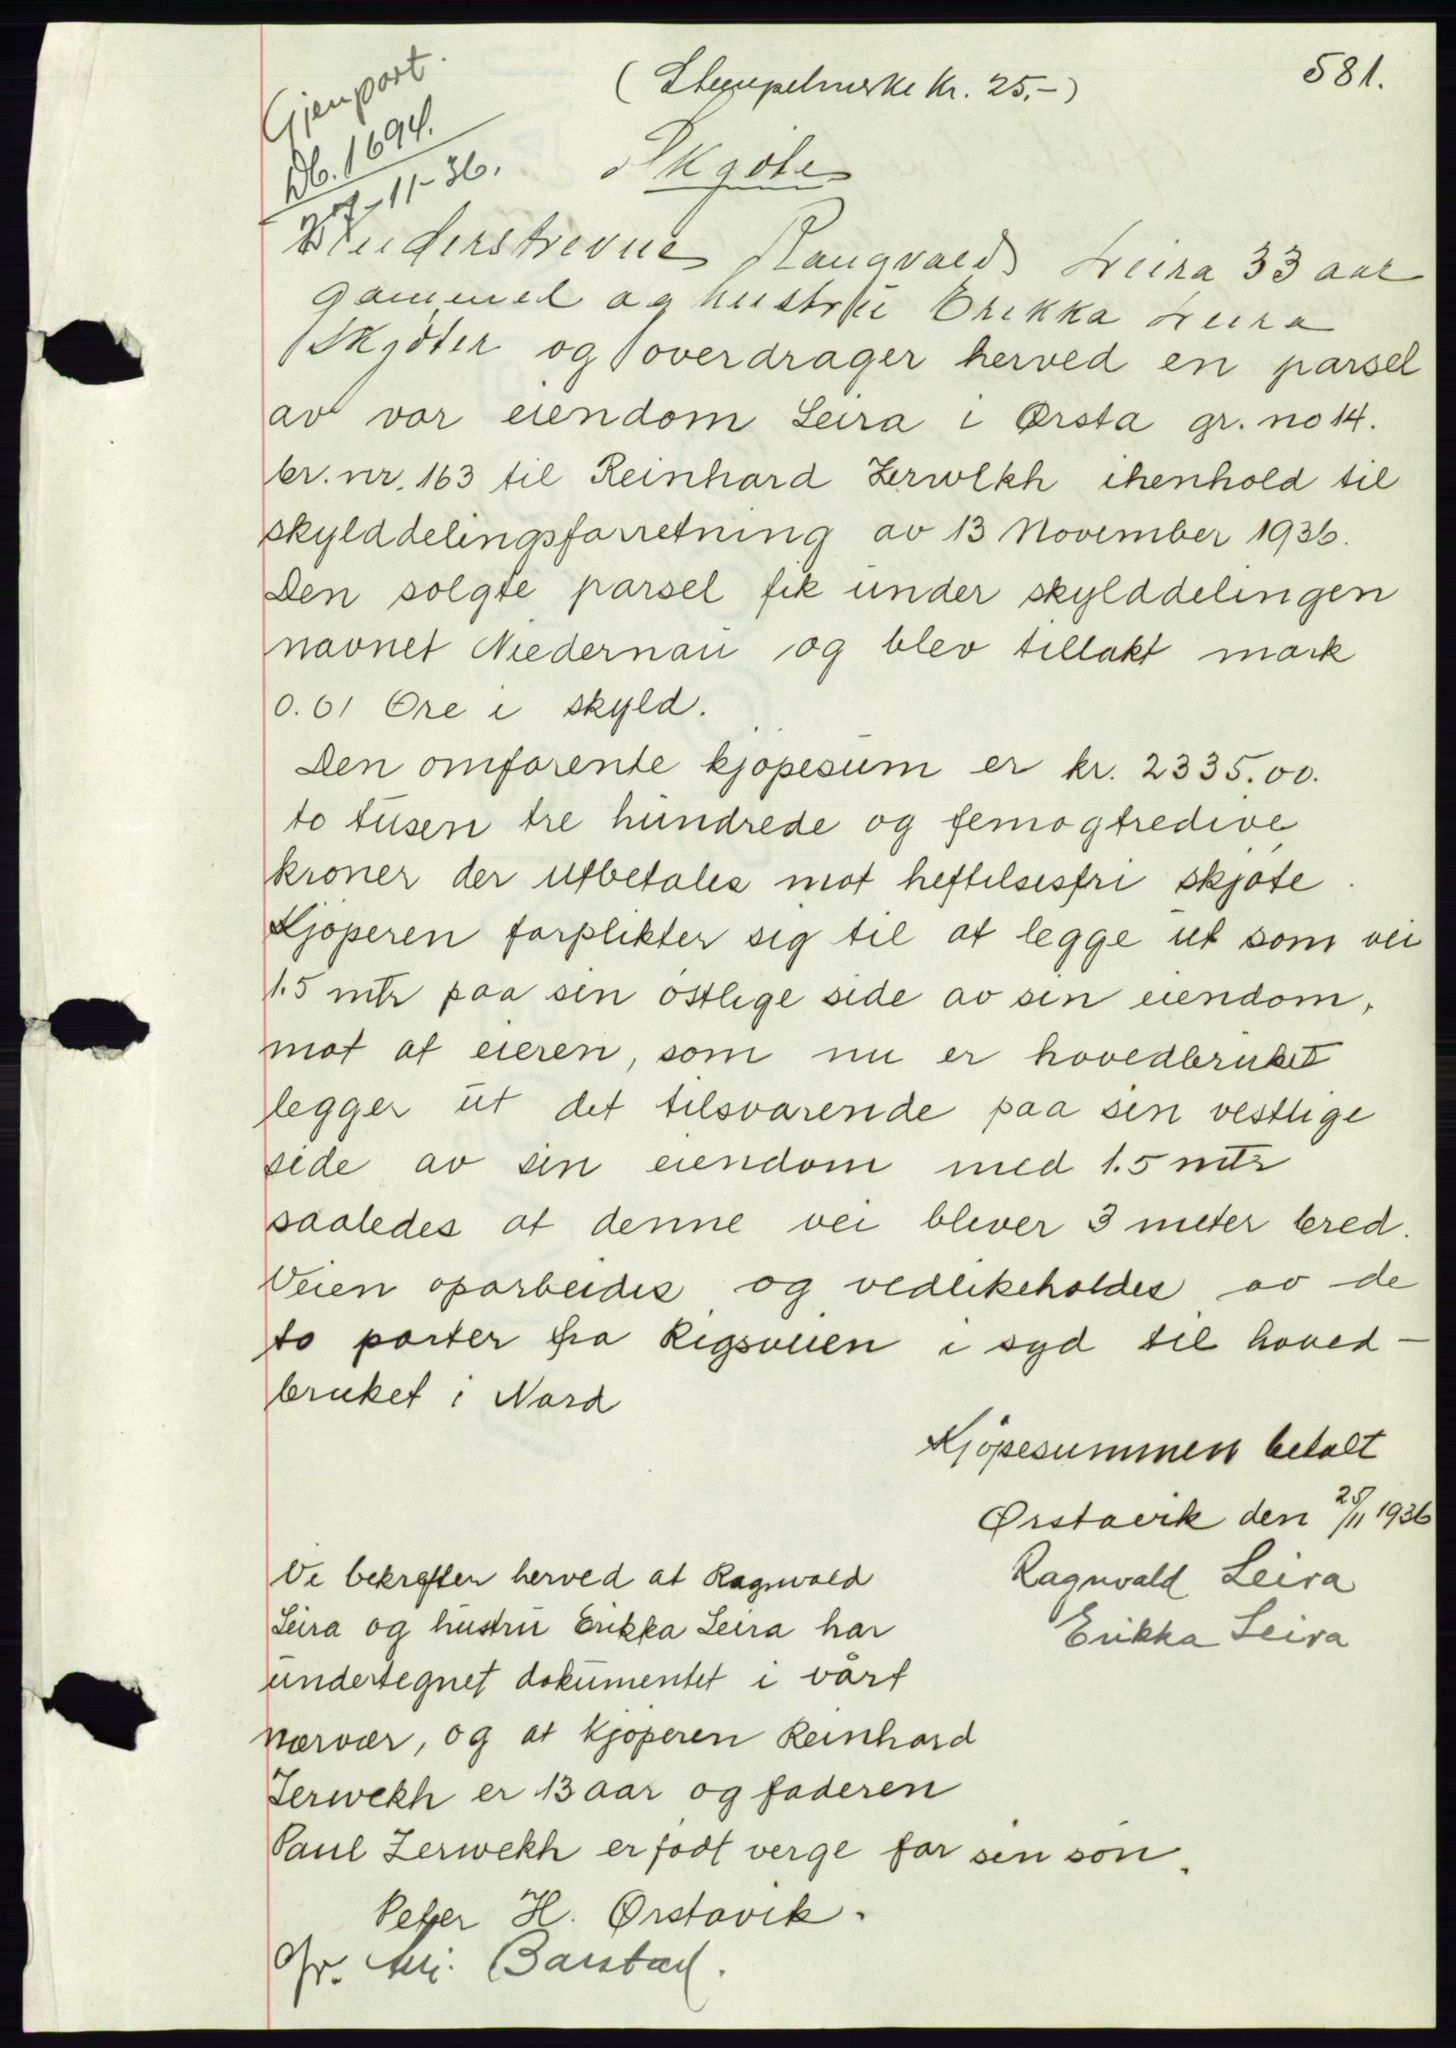 581.
(Stempelmerke kr. 25,-)
Gjenpart.
Db. 1694.
27-11-36.
Skjøte
Understrevne Rangvald Leira 33 aar
gammel og hustru Erikka Leira
Skjøter og overdrager herved en parsel
av vor eiendom Leira i Ørsta gr. no 14.
br. nr. 163 til Reinhard Zerwekh ihenhold til
skylddelingsforretning av 13 November 1936.
Den solgte parsel fik under skylddelingen
navnet Niedernau og blev tillakt mark
0.01 Øre i skyld.
Den omforente kjøpesum er kr. 2335.00.
to tusen tre hundrede og femogtredive
kroner der utbetales mot heftelsesfri skjøte.
Kjøperen forplikter sig til at legge ut som vei
1.5 mtr paa sin østlige side av sin eiendom,
mot at eieren, som nu er hovedbruket
legger ut det tilsvarende paa sin vestlige
side av sin eiendom med 1.5 mtr
saaledes at denne vei bliver 3 meter bred.
Veien oparbeides og vedlikeholdes av de
to parter fra Rigsveien i syd til hoved-
bruket i Nord
Kjøpesummen betalt
Ørstavik den 25/11 1936
Ragnvald Leira
Erikka Leira
Vi bekrefter herved at Ragnvald
Leira og hustru Erikka Leira har
undertegnet dokumentet i vårt
nærvær, og at kjøperen Reinhard
Zerwekh er 13 aar og faderen
Paul Zerwekh er født verge for sin søn.
Peter H. Ørstavik.
Barstad.